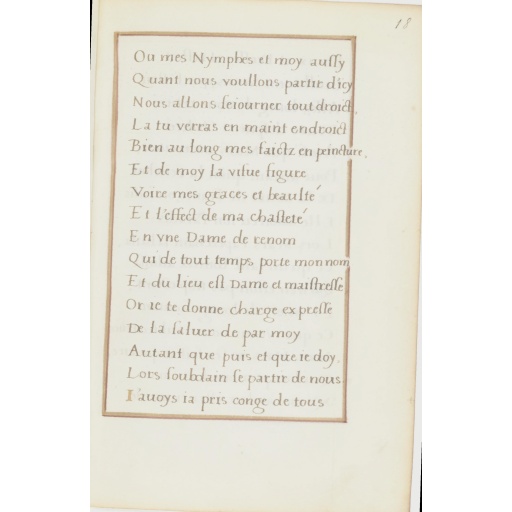 18
Ou mes Nymphes et moy aussy
Quant nous voullons partir d'icy
Nous allons seiourner tout droict.
La tu verras en maint endroict
Bien au long mes faictz en peincture.
Et de moy la visue figure
Voire mes graces et beaulté
Et l'effect de ma chasteté
En vne Dame de renom
Qui de tout temps porte mon nom
Et du lieu est Dame et maistresse
Or ie te donne charge expresse
De la saluer de par moy
Autant que puis et que ie doy.
Lors soubdain se partir de nous.
I'auoys ia pris conge de tous